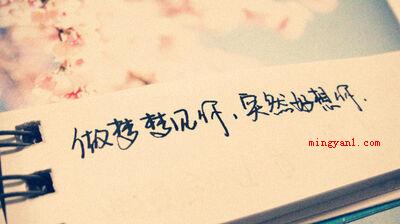 做梦梦见你，突然好想你.
mingyan1.com